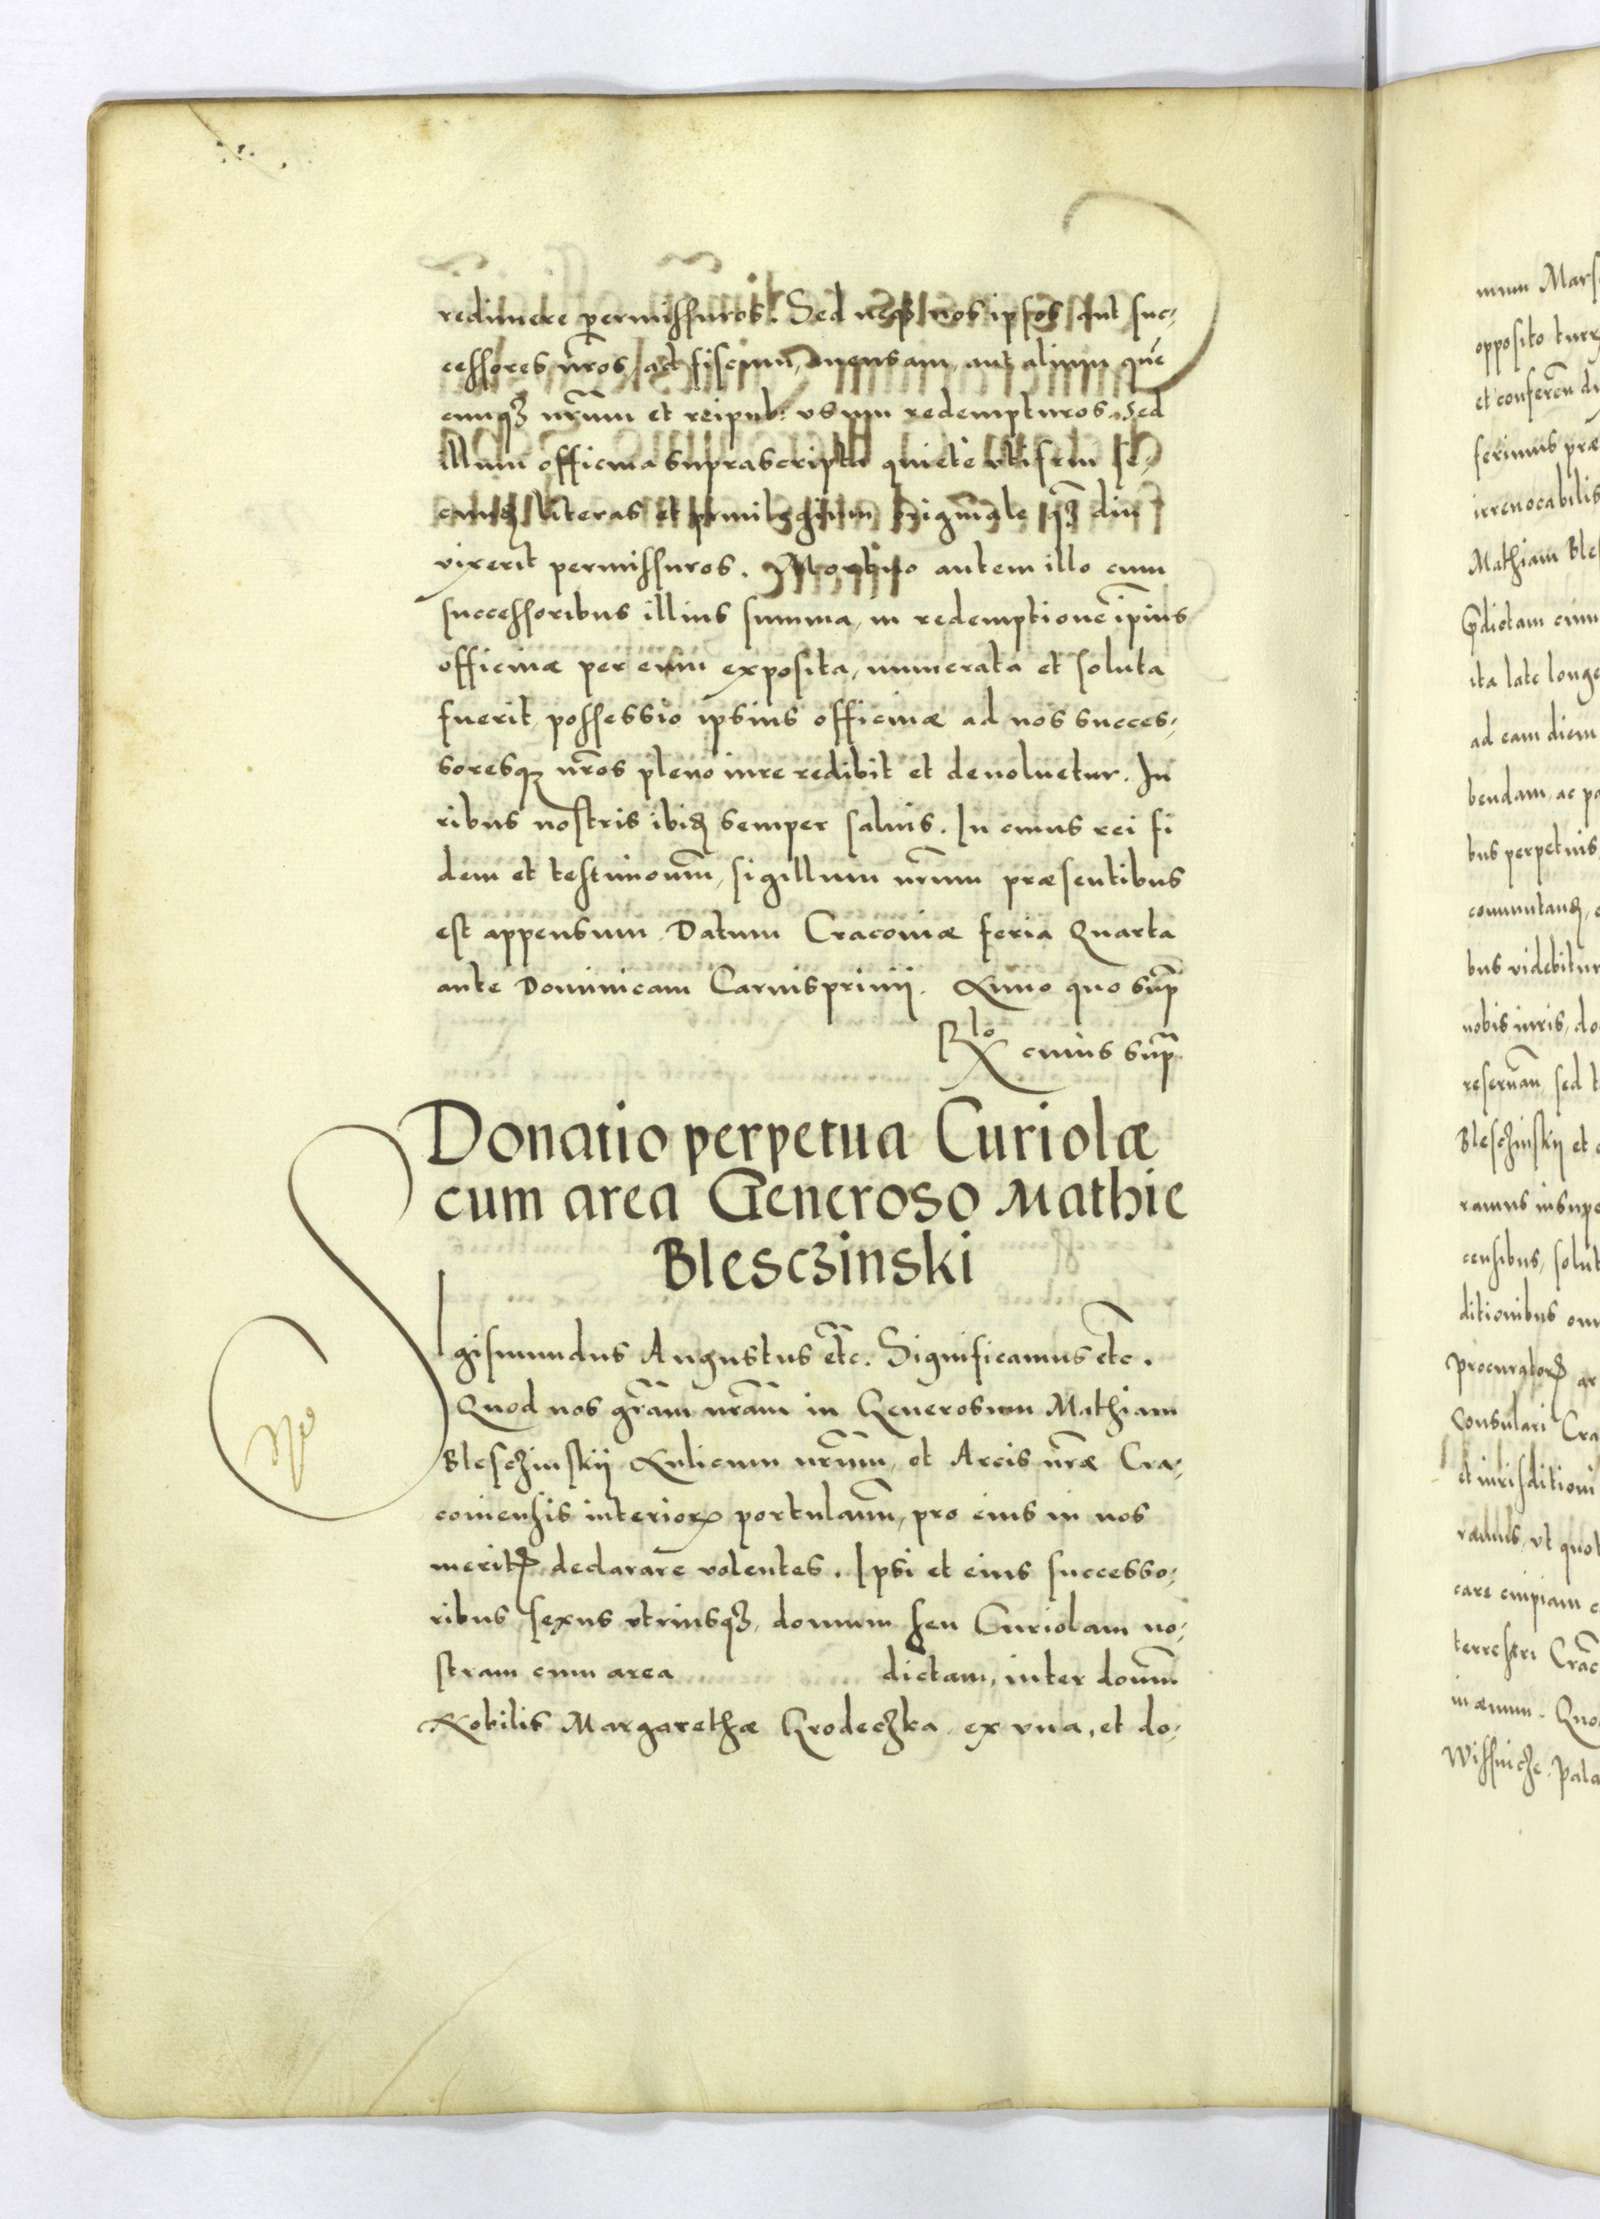 redimere permissuros. Sed neq3 nos ipsos aut suc-
cessores nr̄os, ad fiscum, mensam, aut alium quē
cunq3 nr̄um et reipub: usum redempturos. Sed
illum officina suprascripta quiete uti
literas et originale q3 diu
vixerit permissuros. Mortuo autem illo cum
successoribus illius summa, in redemptionē ip̄ius
officinæ per eum exposita, numerata et soluta
fuerit, possessio ipsius officinæ ad nos succes-
soresq3 nr̄os pleno iure redibit et devoluetur. Iu
ribus nostris ibid semper saluis. In cuius rei fi
dem et testimoniū, sigillum nr̄um præsentibus
est appensum. Datum Cracoviæ feria Quarta
ante Dominicam Carnisprivij. Anno quo sup̄
Rlo cuius sup̄
Donatio perpetua Curiolæ
cum area Generoso Mathie
Blesczinski
Sigismundus Augustus etc̄. Significamus etc̄.
Quod nos gr̄am nr̄am in Generosum Mathiam
Blesczinskij Aulicum nr̄um, et Arcis nr̄æ Cra-
coviensis interiorꝝ portulanū, pro eius in nos
meritꝭ declarare volentes. Ipsi et eius successo-
ribus sexus utriusq3, domum seu Curiolam no-
stram cum area dictam, inter domū
Nobilis Margarethæ Grodeczka ex una, et do-
num Mars
opposito turr
et conferen
ferimus præ
irrevocabilis
Mathiam Bles
p̄dictam cum
ita late longe
ad eam diem
bendam, ac pa
bus perpetuis
commutand,
bus videbitur
nobis iuris, do
reservan, sed
Blesczinskij et
ramus insupe
censibus, solut
ditionibus om
procuratorꝭ ar
Consulari Cra
et iurisditioni
ramus, ut quot
care cuipiam
terrestri Crac
in ævum. Quo
Wissnicze. Pala